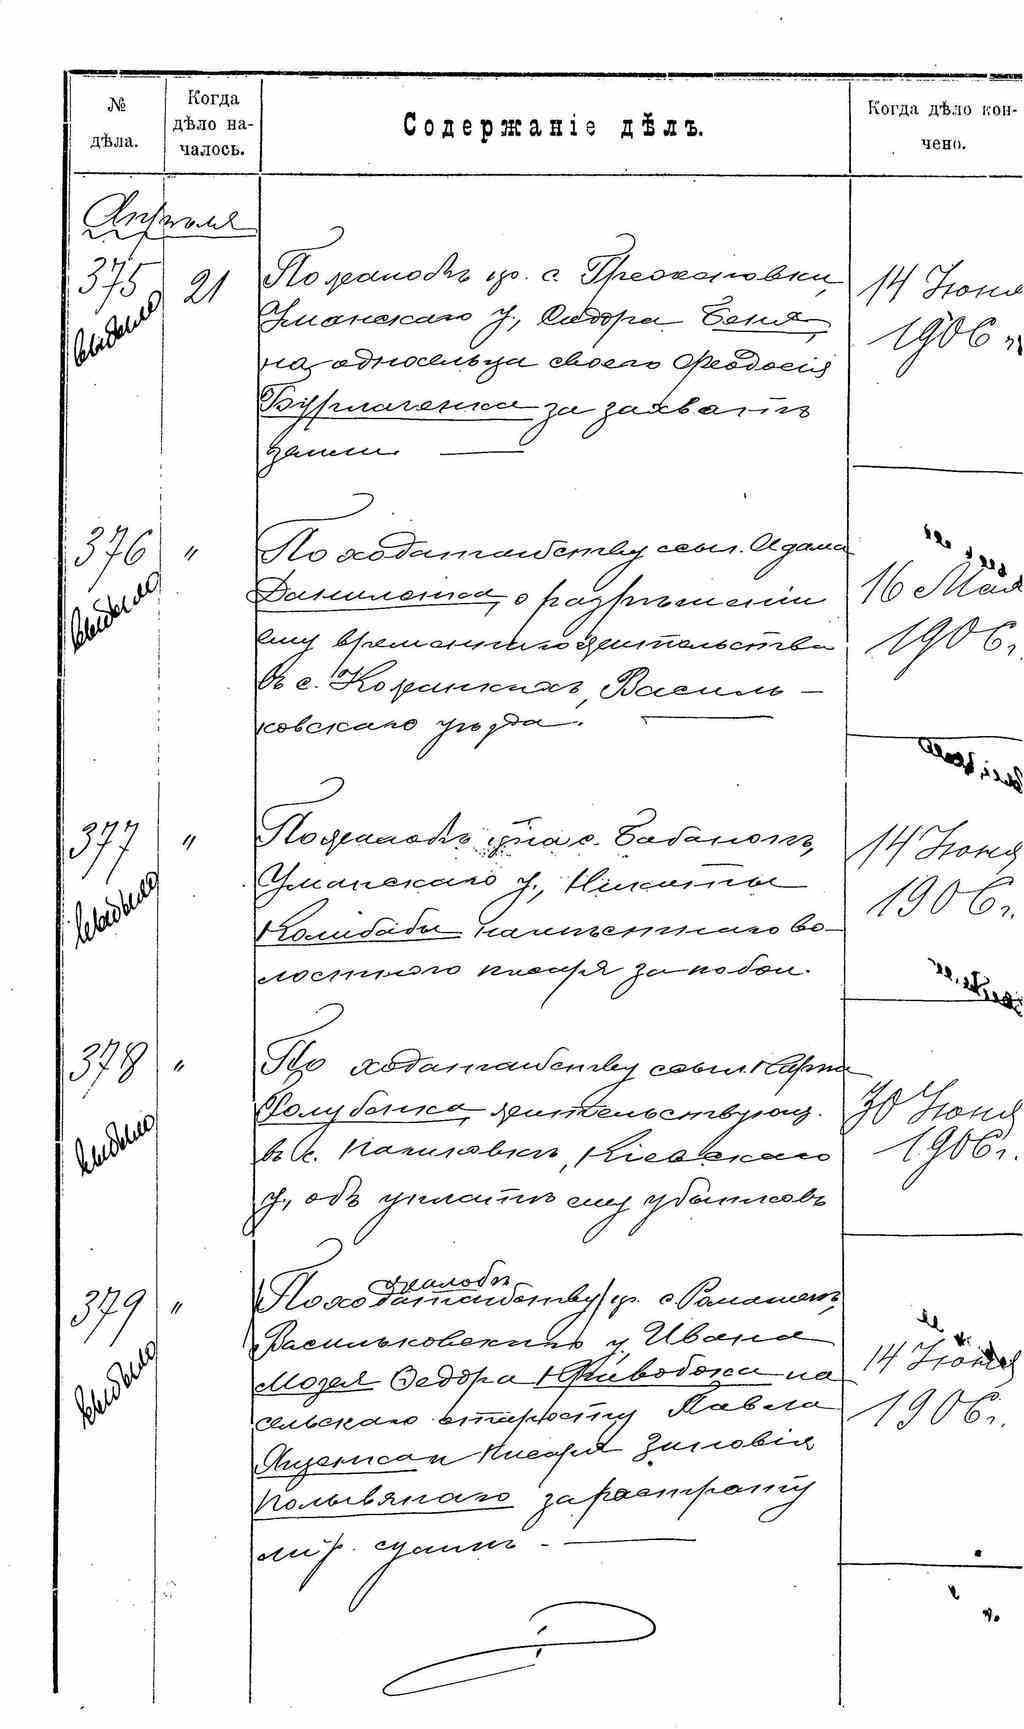 № дѣла.
Когда дѣло началось.
Содержаніе дѣлъ.
Когда дѣло кончено.
Апрѣля
375
выбыло
21
По жалобѣ кр. с.
Уманскаго у., Сидора Беня
на односельца своего Феодосія
Бурлаченка за захватъ
земли.
14 Іюня
1906 г.
376
выбыло
"
По ходатайству ссыл. Адама
Даниленка, о разрѣшеніи
ему временнаго жительства
въ с. Кожанкахъ, Василь-
ковскаго уѣзда.
16 Мая
1906 г.
377
выбыло
"
По жалобѣ кр-на с. Бабанокъ,
Уманскаго у., Никиты
Колибабы на мѣстнаго во-
лостного писаря за побои.
14 Іюня
1906 г.
378
выбыло
"
По ходатайству ссыл. Карпа
Голубенка, жительствующ.
въ с. Кіевскаго
у., объ уплатѣ ему убытковъ
30 Іюня
1906 г.
379
выбыло
"
жалобѣ
По ходатайству кр. с.
Васильковскаго у. Ивана
Мозея Федора Кривобока на
сельскаго старосту Павла
Яценка и писаря Зиновія
за растрату
мір. суммъ.
14 Іюня
1906 г.